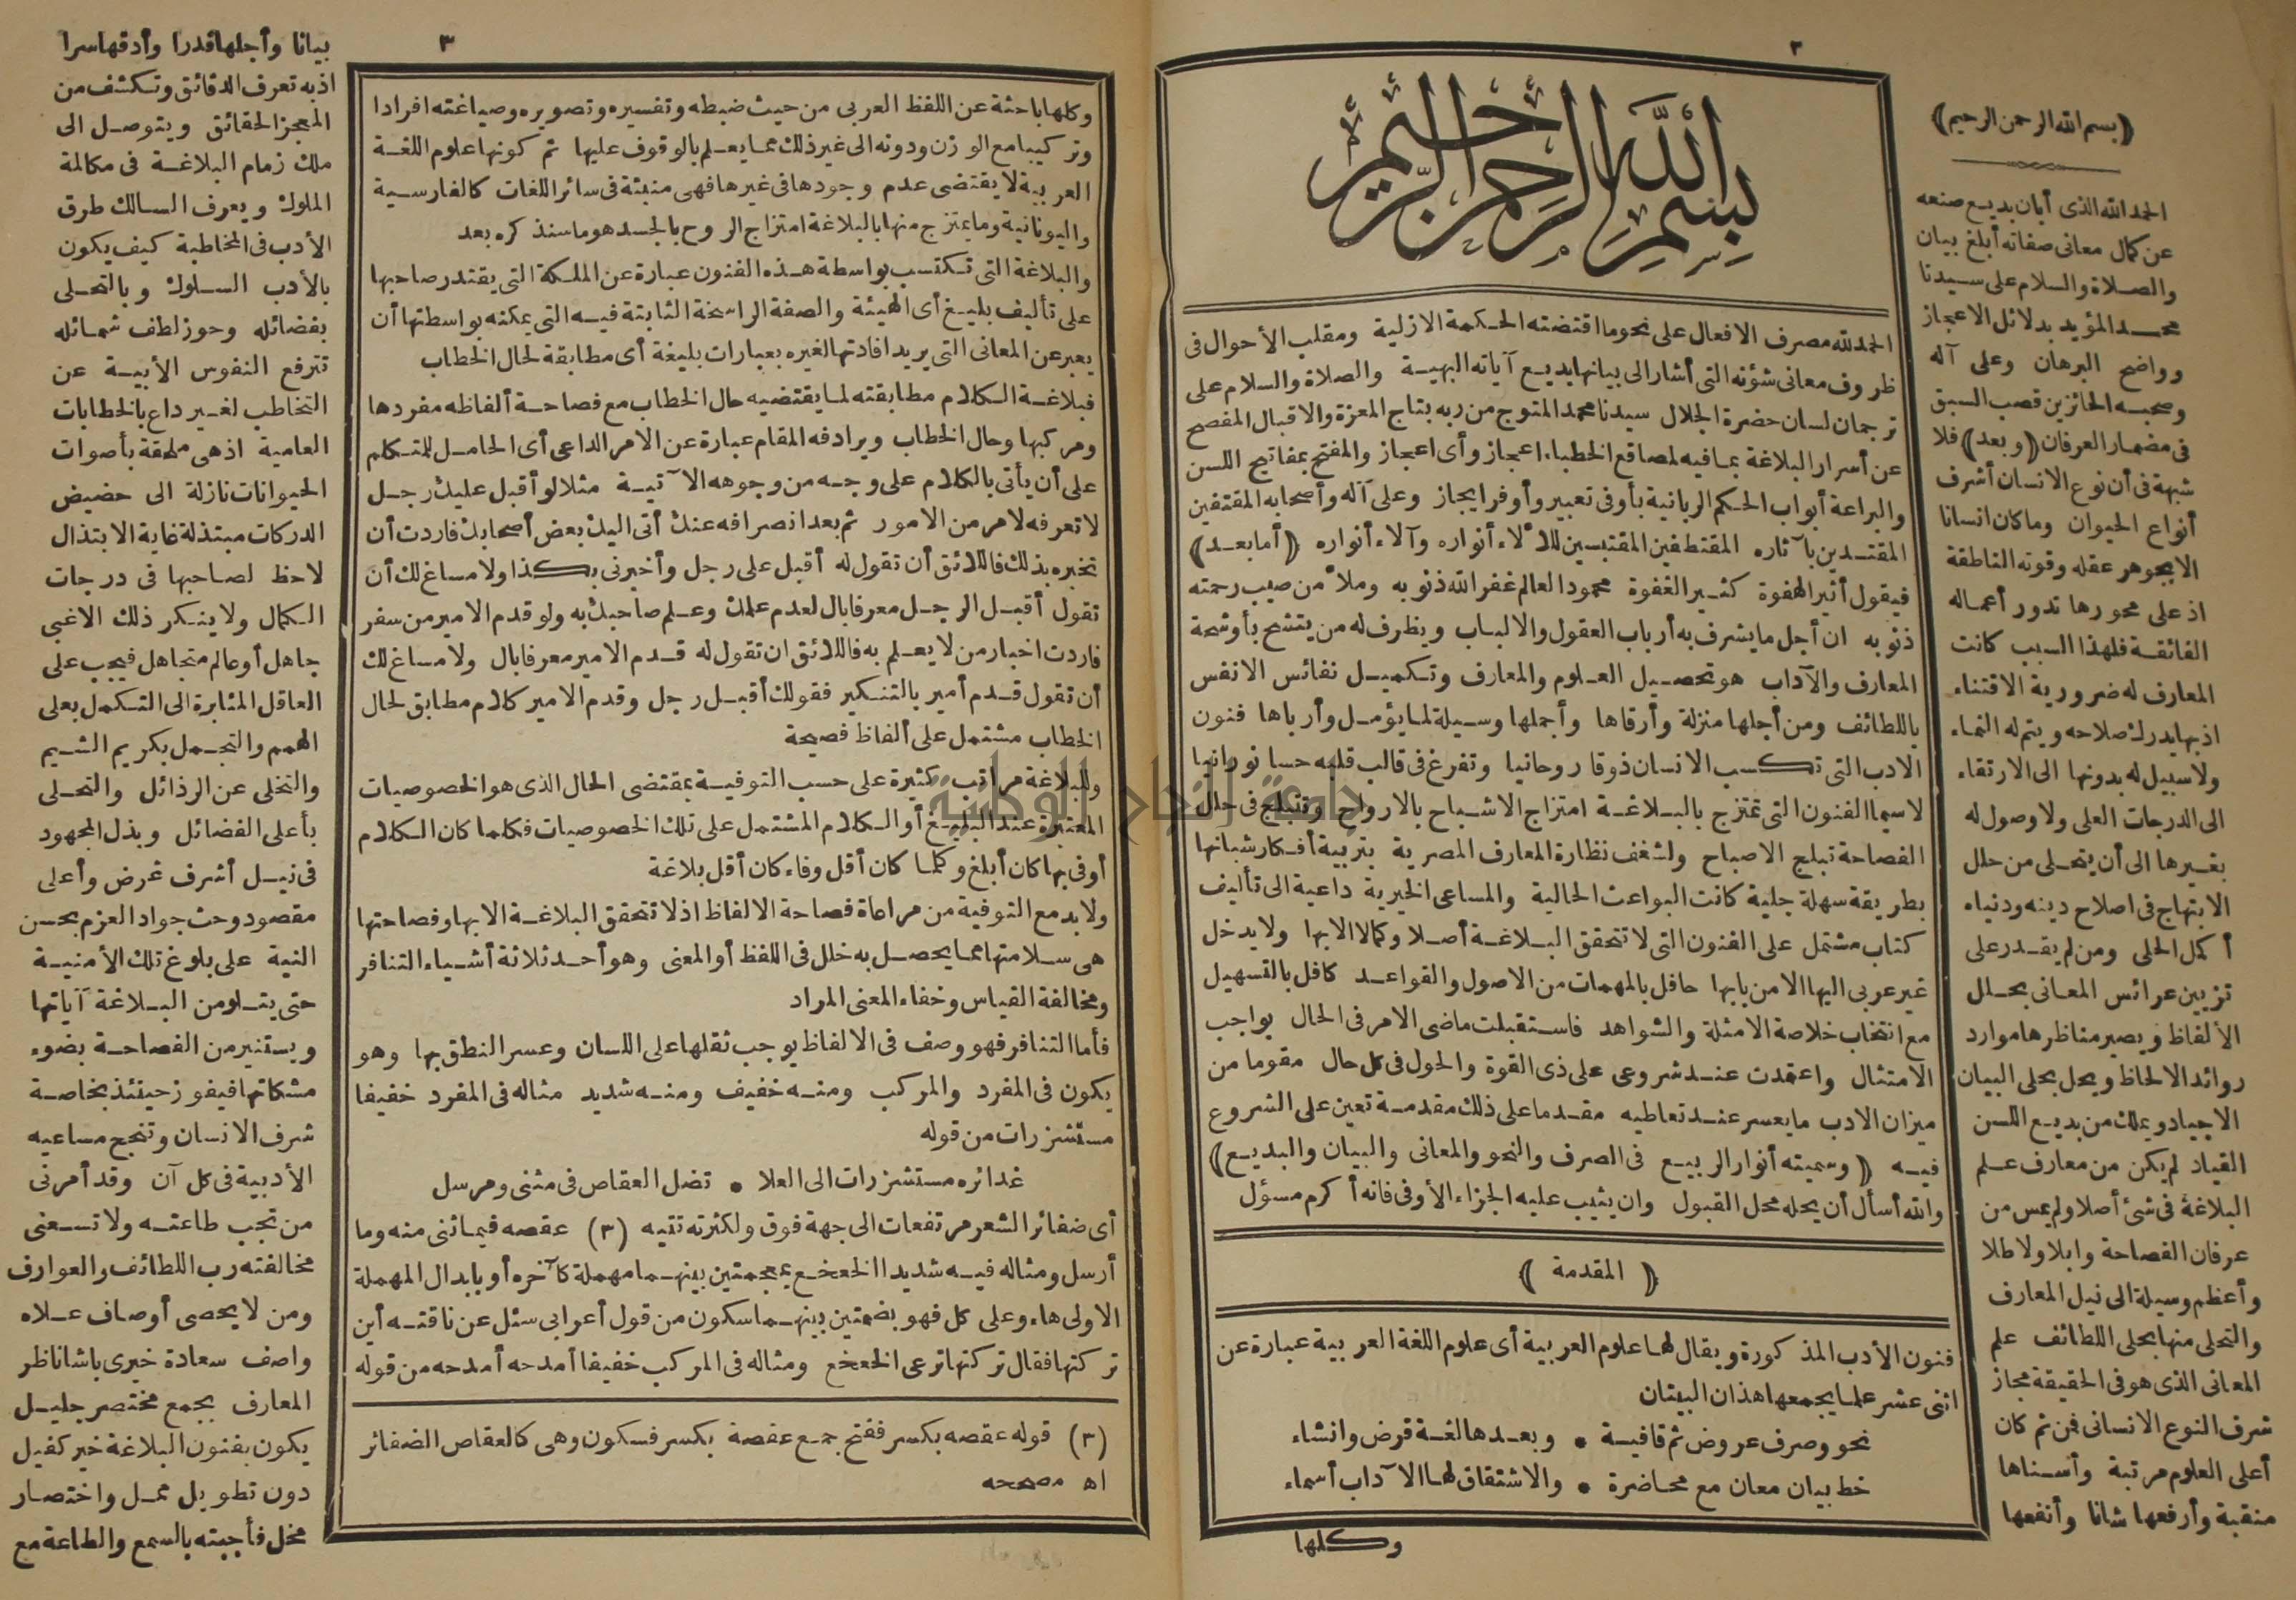 ٢
بسم الله الرحمن الرحيم
الحمد لله مصرف الافعال على نحو ما اقتضته الحكمة الازلية ومقلب الأحوال فى
ظروف معانى شؤنه التى أشار الى بيانها بديع آياته البهية والصلاة والسلام على
ترجمان لسان حضرة الجلال سيدنا محمد المتوج من ربه بتاج المعزة والاقبال المفصح
عن أسرار البلاغة بما فيه لمصاقع الخطباء اعجاز وأى اعجاز والمفتح بمفاتيح اللسن
والبراعة أبواب الحكم الربانية بأوفى تعبير وأوفر ايجاز وعلى آله وأصحابه المقتفين
المقتدين بآثاره المقتطفين المقتبسين للألاء أنواره وآلاء أنواره ﴿ أما بعد ﴾
فيقول أثير الهفوة كثير الغفوة محمود العالم غفر الله ذنوبه وملأ من صيب رحمته
ذنوبه ان أجل ما يشرف به أرباب العقول والالباب ويظرف له من يتشح بأوشحة
المعارف والآداب هو تحصيل العلوم والمعارف وتكميل نفائس الانفس
باللطائف ومن أجلها منزلة وأرقاها وأجملها وسيلة لما يؤمل وأرباها فنون
الادب التى تكسب الانسان ذوقا روحانيا وتفرغ فى قالب قلبه حسا نورانيا
لاسيما الفنون التى تمتزج بالبلاغة امتزاج الاشباح بالارواح وتنبلج فى حلل
الفصاحة تبلج الاصباح ولشغف نظارة المعارف المصرية بتربية أفكار شبانها
بطريقة سهلة جلية كانت البواعث الحالية والمساعى الخيرية داعية الى تأليف
كتاب مشتمل على الفنون التى لا تتحقق البلاغة أصلا وكمالا الا بها ولا يدخل
غير عربى اليها الا من بابها حافل بالمهمات من الاصول والقواعد كافل بالتسهيل
مع انتخاب خلاصة الامثلة والشواهد فاستقبلت ماضى الامر فى الحال بواجب
الامتثال واعتمدت عند شروعى على ذى القوة والحول فى كل حال مقوما من
ميزان الادب ما يعسر عند تعاطيه مقدما على ذلك مقدمة تعين على الشروع
فيه ﴿ وسميته أنوار الربيع فى الصرف والنحو والمعانى والبيان والبديع ﴾
والله أسأل أن يحله محل القبول وان يثيب عليه الجزاء الأوفى فانه أكرم مسؤل
﴿ المقدمة ﴾
فنون الأدب المذكورة ويقال لها علوم العربية أى علوم اللغة العربية عبارة عن
اثنى عشر علما يجمعها هذان البيتان
نحو وصرف عروض ثم قافية • وبعدها لغة قرض وانشاء
خط بيان معان مع محاضرة • والاشتقاق لها الآداب أسماء
وكلها
﴿بسم الله الرحمن الرحيم﴾
الحمد لله الذى أبان بديع صنعه
عن كمال معانى صفاته أبلغ بيان
والصلاة والسلام على سيدنا
محمد المؤيد بدلائل الاعجاز
وواضح البرهان وعلى آله
وصحبه الحائزين قصب السبق
فى مضمار العرفان ﴿وبعد﴾ فلا
شبهة فى أن نوع الانسان أشرف
أنواع الحيوان وما كان انسانا
الا بجوهر عقله وقوته الناطقة
اذ على محورها تدور أعماله
الفائقة فلهذا السبب كانت
المعارف له ضرورية الاقتناء
اذ بها يدرك صلاحه ويتم له النماء
ولا سبيل له بدونها الى الارتقاء
الى الدرجات العلى ولا وصول له
بغيرها الى أن يتحلى من حلل
الابتهاج فى اصلاح دينه ودنياه
أكمل الحلى ومن لم يقدر على
تزيين عرائس المعانى بحلل
الألفاظ ويصير مناظرها موارد
روائد الالحاظ ويحل بحلى البيان
الاجياد ويملك من بديع اللسن
القياد لم يكن من معارف علم
البلاغة فى شئ أصلا ولم يمس من
عرفان الفصاحة وابلا ولا طلا
وأعظم وسيلة الى نيل المعارف
والتحلى منها بحلى اللطائف علم
المعانى الذى هو فى الحقيقة مجاز
شرف النوع الانسانى فمن ثم كان
أعلى العلوم مرتبة وأسناها
منقبة وأرفعها شانا وأنفعها
٣
وكلها باحثة عن اللفظ العربى من حيث ضبطه وتفسيره وتصويره وصياغته افرادا
وتركيبا مع الوزن ودونه الى غير ذلك مما يعلم بالوقوف عليها ثم كونها علوم اللغة
العربية لا يقتضى عدم وجودها فى غيرها فهى منبثة فى سائر اللغات كالفارسية
واليونانية وما يمتزج منها بالبلاغة امتزاج الروح بالجسد هو ما سنذكره بعد
والبلاغة التى تكتسب بواسطة هذه الفنون عبارة عن الملكة التى يقتدر صاحبها
على تأليف بليغ أى الهيئة والصفة الراسخة الثابتة فيه التى يمكنه بواسطتها أن
يعبر عن المعانى التى يريد افادتها لغيره بعبارات بليغة أى مطابقة لحال الخطاب
فبلاغة الكلام مطابقته لما يقتضيه حال الخطاب مع فصاحة ألفاظه مفردها
ومركبها وحال الخطاب ويرادفه المقام عبارة عن الامر الداعى أى الحامل للمتكلم
على أن يأتى بالكلام على وجه من وجوهه الآتية مثلا لو أقبل عليك رجل
لا تعرفه لامر من الامور ثم بعد انصرافه عنك أتى اليك بعض أصحابك فاردت أن
تخبره بذلك فاللائق أن تقول له أقبل على رجل وأخبرنى بكذا ولا مساغ لك أن
تقول أقبل الرجل معرفا بال لعدم علمك وعلم صاحبك به ولو قدم الامير من سفر
فاردت اخبار من لا يعلم به فاللائق ان تقول له قدم الامير معرفا بال ولا مساغ لك
أن تقول قدم أمير بالتنكير فقولك أقبل رجل وقدم الامير كلام مطابق لحال
الخطاب مشتمل على ألفاظ فصيحة
وللبلاغة مراتب كثيرة على حسب التوفية بمقتضى الحال الذى هو الخصوصيات
المعتبرة عند البليغ أو الكلام المشتمل على تلك الخصوصيات فكلما كان الكلام
أوفى بها كان أبلغ وكلما كان أقل وفاء كان أقل بلاغة
ولا بد مع التوفية من مراعاة فصاحة الالفاظ اذ لا تتحقق البلاغة الا بها وفصاحتها
هى سلامتها مما يحصل به خلل فى اللفظ أو المعنى وهو أحد ثلاثة أشياء التنافر
ومخالفة القياس وخفاء المعنى المراد
فأما التنافر فهو وصف فى الالفاظ يوجب ثقلها على اللسان وعسر النطق بها وهو
يكون فى المفرد والمركب ومنه خفيف ومنه شديد مثاله فى المفرد خفيفا
مستشزرات من قوله
غدائره مستشزرات الى العلا • تضل العقاص فى مثنى ومرسل
أى ضفائر الشعر مرتفعات الى جهة فوق ولكثرته تتيه (٣) عقصه فيما ثنى منه وما
أرسل ومثاله فيه شديدا الخعخع بمعجمتين بينهما مهملة كآخره أو بابدال المهملة
الاولى هاء وعلى كل فهو بضمتين بينهما سكون من قول أعرابى سئل عن ناقته أين
تركتها فقال تركتها ترعى الخعخع ومثاله فى المركب خفيفا أمدحه أمدحه من قوله
(٣) قوله عقصه بكسر ففتح جمع عقصة بكسر فسكون وهى كالعقاص الضفائر
اه مصححه
بيانا وأجلها قدرا وأدقها سرا
اذ به تعرف الدقائق وتكشف من
المعجز الحقائق ويتوصل الى
ملك زمام البلاغة فى مكالمة
الملوك ويعرف السالك طرق
الأدب فى المخاطبة كيف يكون
بالأدب السلوك وبالتحلى
بفضائله وحوز لطف شمائله
تترفع النفوس الأبية عن
التخاطب لغير داع بالخطابات
العامية اذ هى ملحقة بأصوات
الحيوانات نازلة الى حضيض
الدركات مبتذلة غاية الابتذال
لاحظ لصاحبها فى درجات
الكمال ولا ينكر ذلك الا غبى
جاهل أو عالم متجاهل فيجب على
العاقل المثابرة الى التكمل بعلى
الهمم والتجمل بكريم الشيم
والتخلى عن الرذائل والتحلى
بأعلى الفضائل وبذل المجهود
فى نيل أشرف غرض وأعلى
مقصود وحث جواد العزم بحسن
النية على بلوغ تلك الأمنية
حتى يتلو من البلاغة آياتها
ويستنير من الفصاحة بضوء
مشكاتها فيفوز حينئذ بخاصة
شرف الانسان وتنجح مساعيه
الأدبية فى كل آن وقد أمرنى
من تجب طاعته ولا تسعنى
مخالفته رب اللطائف والعوارف
ومن لا يحصى أوصاف علاه
واصف سعادة خيرى باشا ناظر
المعارف بجمع مختصر جليل
يكون بفنون البلاغة خير كفيل
دون تطويل ممل واختصار
مخل فأجبته بالسمع والطاعة مع
جامعة النجاح الوطنية